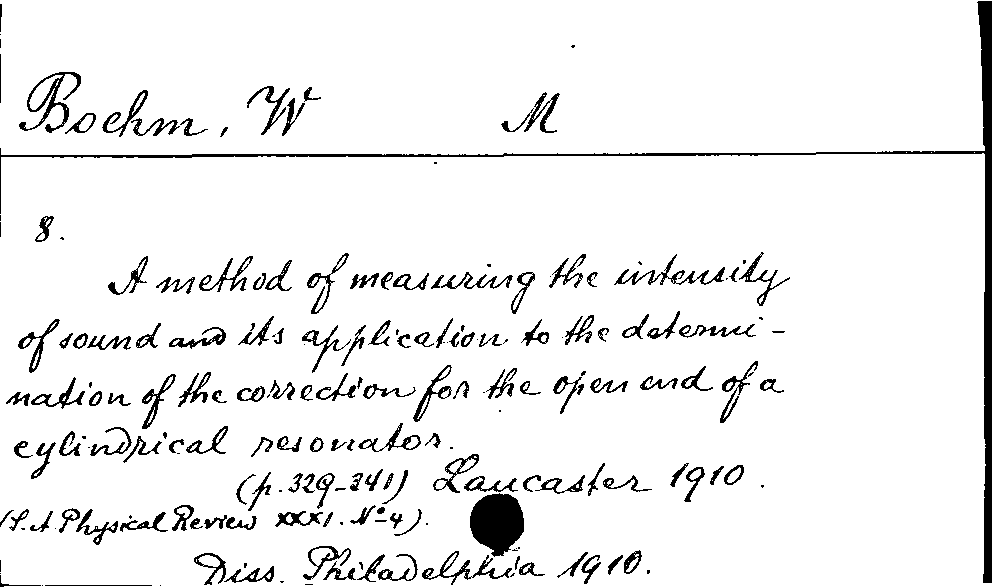 Boehm, W M
8.
A method of measuring the intensity
of sound and its application to the determi-
nation of the correction for the open end of a
cylindrical resonator.
(p. 329-341) Lancaster 1910.
(S. A Physical Review XXXI. No 4).
Diss. Philadelphia 1910.